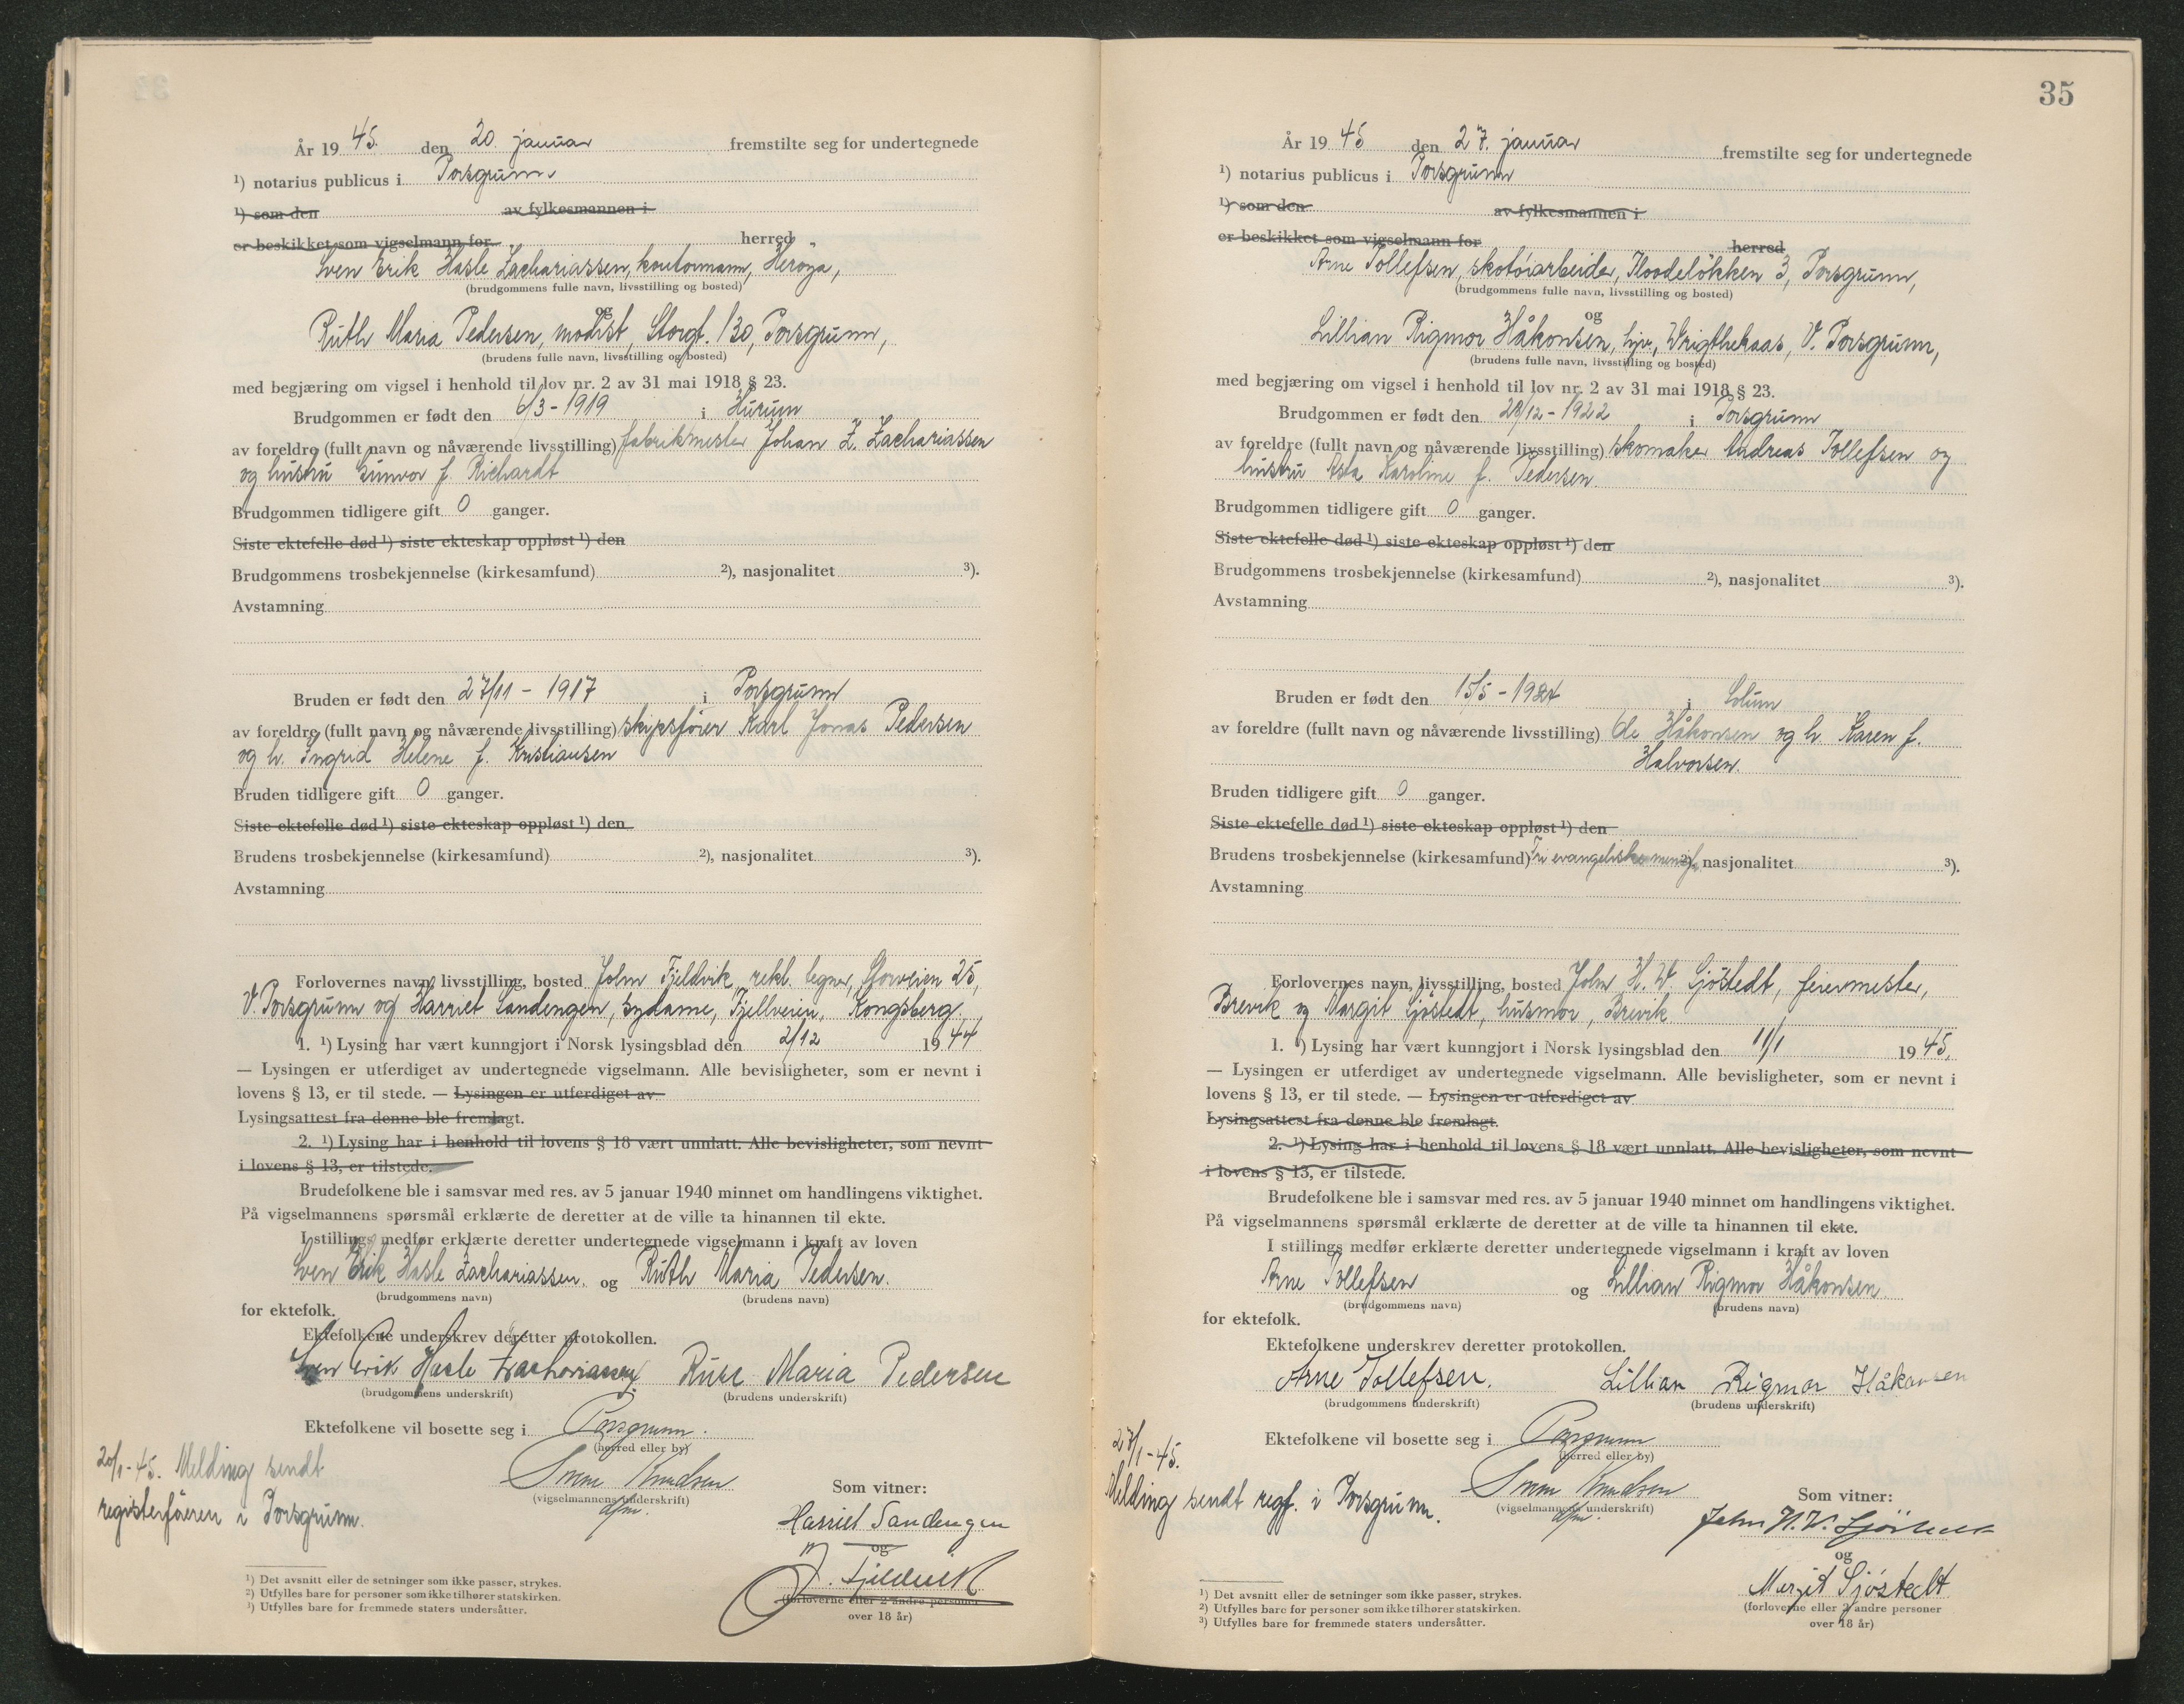 År 19 45. den 20. januar fremstilte seg for undertegnede
¹) notarius publicus i Porsgrunn
¹) som den av fylkesmannen i
er beskikket som vigselmann for herred
Sven Erik Hasle Zachariassen, kontormann, Herøya,
(brudgommens fulle navn, livsstilling og bosted)
og
Ruth Maria Pedersen, modist, Storgt. 130, Porsgrunn,
(brudens fulle navn, livsstilling og bosted)
med begjæring om vigsel i henhold til lov nr. 2 av 31 mai 1918 § 23.
Brudgommen er født den 6/3 - 1919 i Hurum
av foreldre (fullt navn og nåværende livsstilling) fabrikmester Johan Z. Zachariassen
og hustru Gunvor f. Richardt
Brudgommen tidligere gift 0 ganger.
Siste ektefelle død ¹) siste ekteskap oppløst ¹) den
Brudgommens trosbekjennelse (kirkesamfund) ²), nasjonalitet ³).
Avstamning
Bruden er født den 27/11 - 1917 i Porsgrunn
av foreldre (fullt navn og nåværende livsstilling) skipsfører Karl Jonas Pedersen
og h. Ingrid Helene f. Kristiansen
Bruden tidligere gift 0 ganger.
Siste ektefelle død ¹) siste ekteskap oppløst ¹) den
Brudens trosbekjennelse (kirkesamfund) ²), nasjonalitet ³).
Avstamning
Forlovernes navn, livsstilling, bosted John Fjeldvik, rekl. tegner, Storveien 25,
V. Porsgrunn og Harriet Sandengen, sydame, Fjellveien, Kongsberg.
1. ¹) Lysing har vært kunngjort i Norsk lysingsblad den 2/12 19 44
— Lysingen er utferdiget av undertegnede vigselmann. Alle bevisligheter, som er nevnt i
lovens § 13, er til stede. — Lysingen er utferdiget av
Lysingsattest fra denne ble fremlagt.
2. ¹) Lysing har i henhold til lovens § 18 vært unnlatt. Alle bevisligheter, som nevnt
i lovens § 13, er tilstede.
Brudefolkene ble i samsvar med res. av 5 januar 1940 minnet om handlingens viktighet.
På vigselmannens spørsmål erklærte de deretter at de ville ta hinannen til ekte.
I stillings medfør erklærte deretter undertegnede vigselmann i kraft av loven
Sven Erik Hasle Zachariassen. og Ruth Maria Pedersen.
(brudgommens navn) (brudens navn)
for ektefolk.
Ektefolkene underskrev deretter protokollen.
Sven Erik Hasle Zachariassen Ruth Maria Pedersen
(brudgommens underskrift) (brudens underskrift)
Ektefolkene vil bosette seg i Porsgrunn.
(herred eller by)
20/1-45. Melding sendt
registerføreren i Porsgrunn.
Knudsen
(vigselmannens underskrift)
dfm.
Som vitner:
Harriet Sandengen
og
J. Fjeldvik
(forloverne eller 2 andre personer
over 18 år)
¹) Det avsnitt eller de setninger som ikke passer, strykes.
²) Utfylles bare for personer som ikke tilhører statskirken.
³) Utfylles bare for fremmede staters undersåtter.
35
År 19 45 den 27. januar fremstilte seg for undertegnede
¹) notarius publicus i Porsgrunn
¹) som den av fylkesmannen i
er beskikket som vigselmann for herred
Arne Tollefsen, skotøiarbeider, Floodeløkken 3, Porsgrunn,
(brudgommens fulle navn, livsstilling og bosted)
og
Lillian Rigmor Håkonsen, hjv., Wrigthekaas, V. Porsgrunn,
(brudens fulle navn, livsstilling og bosted)
med begjæring om vigsel i henhold til lov nr. 2 av 31 mai 1918 § 23.
Brudgommen er født den 28/12 - 1922 i Porsgrunn
av foreldre (fullt navn og nåværende livsstilling) skomaker Andreas Tollefsen og
hustru Asta Karoline f. Pedersen.
Brudgommen tidligere gift 0 ganger.
Siste ektefelle død ¹) siste ekteskap oppløst ¹) den
Brudgommens trosbekjennelse (kirkesamfund) ²), nasjonalitet ³).
Avstamning
Bruden er født den 15/5 - i Solum
av foreldre (fullt navn og nåværende livsstilling) Ole Håkonsen og h. Karen f.
Halvorsen.
Bruden tidligere gift 0 ganger.
Siste ektefelle død ¹) siste ekteskap oppløst ¹) den
Brudens trosbekjennelse (kirkesamfund) Fri evangeliske ²), nasjonalitet ³).
Avstamning
Forlovernes navn, livsstilling, bosted John H. W. Sjöstedt, feiermester,
Brevik og Margit Sjöstedt, husmor, Brevik
1. ¹) Lysing har vært kunngjort i Norsk lysingsblad den 11/1 19 45.
— Lysingen er utferdiget av undertegnede vigselmann. Alle bevisligheter, som er nevnt i
lovens § 13, er til stede. — Lysingen er utferdiget av
Lysingsattest fra denne ble fremlagt.
2. ¹) Lysing har i henhold til lovens § 18 vært unnlatt. Alle bevisligheter, som nevnt
i lovens § 13, er tilstede.
Brudefolkene ble i samsvar med res. av 5 januar 1940 minnet om handlingens viktighet.
På vigselmannens spørsmål erklærte de deretter at de ville ta hinannen til ekte.
I stillings medfør erklærte deretter undertegnede vigselmann i kraft av loven
Arne Tollefsen og Lillian Rigmor Håkonsen.
(brudgommens navn) (brudens navn)
for ektefolk.
Ektefolkene underskrev deretter protokollen.
Arne Tollefsen. Lillian Rigmor Håkonsen
(brudgommens underskrift) (brudens underskrift)
Ektefolkene vil bosette seg i Porsgrunn
(herred eller by)
27/1-45.
Melding sendt regf. i Porsgrunn.
Knudsen
(vigselmannens underskrift)
dfm.
Som vitner:
John H. W. Sjöstedt
og
Margit Sjöstedt
(forloverne eller 2 andre personer
over 18 år)
¹) Det avsnitt eller de setninger som ikke passer, strykes.
²) Utfylles bare for personer som ikke tilhører statskirken.
³) Utfylles bare for fremmede staters undersåtter.